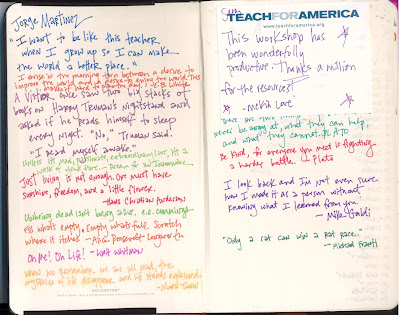 Jorge Martinez
"I want to be like this teacher
when I grow up so I can make
the world a better place."
I arise in the morning torn between a desire to
improve the world and a desire to enjoy the world. This
makes it hard to plan the day. - E.B. White
A visitor once saw two big stacks of
books on Harry Truman's nightstand and
asked if he reads himself to sleep
every night. "No," Truman said.
"I read myself awake."
Unless it's mad, passionate, extraordinary love, it's a
waste of your time.
Just living is not enough. One must have
sunshine, freedom, and a little flower.
- Hans Christian Anderson
Unbeing dead isn't being alive. e.e. cummings
Fill what's empty. Empty what's full. Scratch
where it itches - Alice Roosevelt Longworth
Oh Me! Oh Life! - Walt Whitman
When we remember we are all mad, the
mysteries of life disappear and life stands explained.
- Mark Twain
MOLESKINE
Sam
TEACHFORAMERICA
www.teachforamerica.org
This workshop has
been wonderfully
productive. Thanks a million
for the resources!
There are two
never be angry at, what they can help,
and what they cannot. PLATO
Be kind, for everyone you meet is fighting
a harder battle. Plato
I look back and I'm not even sure
how I made it as a person without
knowing what I learned from you.
"Only a rat can win a rat race."
- Michael Franti